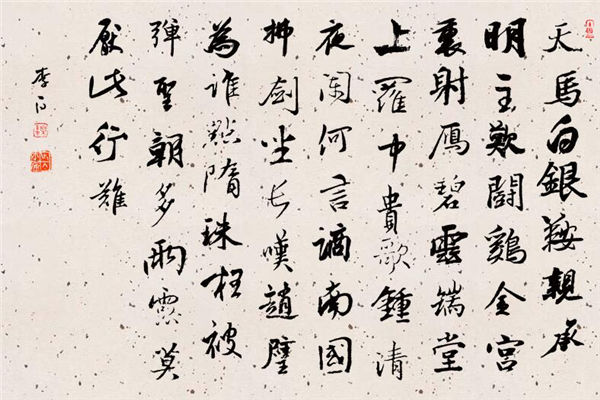 天馬白銀鞍親承
明主歡闘鷄金宮
裏射鴈碧雲端堂
上羅中貴歌鍾清
夜闌何言謫南國
拂劍坐長嘆趙璧
為誰點隋珠枉被
彈聖朝多雨露莫
厭此行難
李白